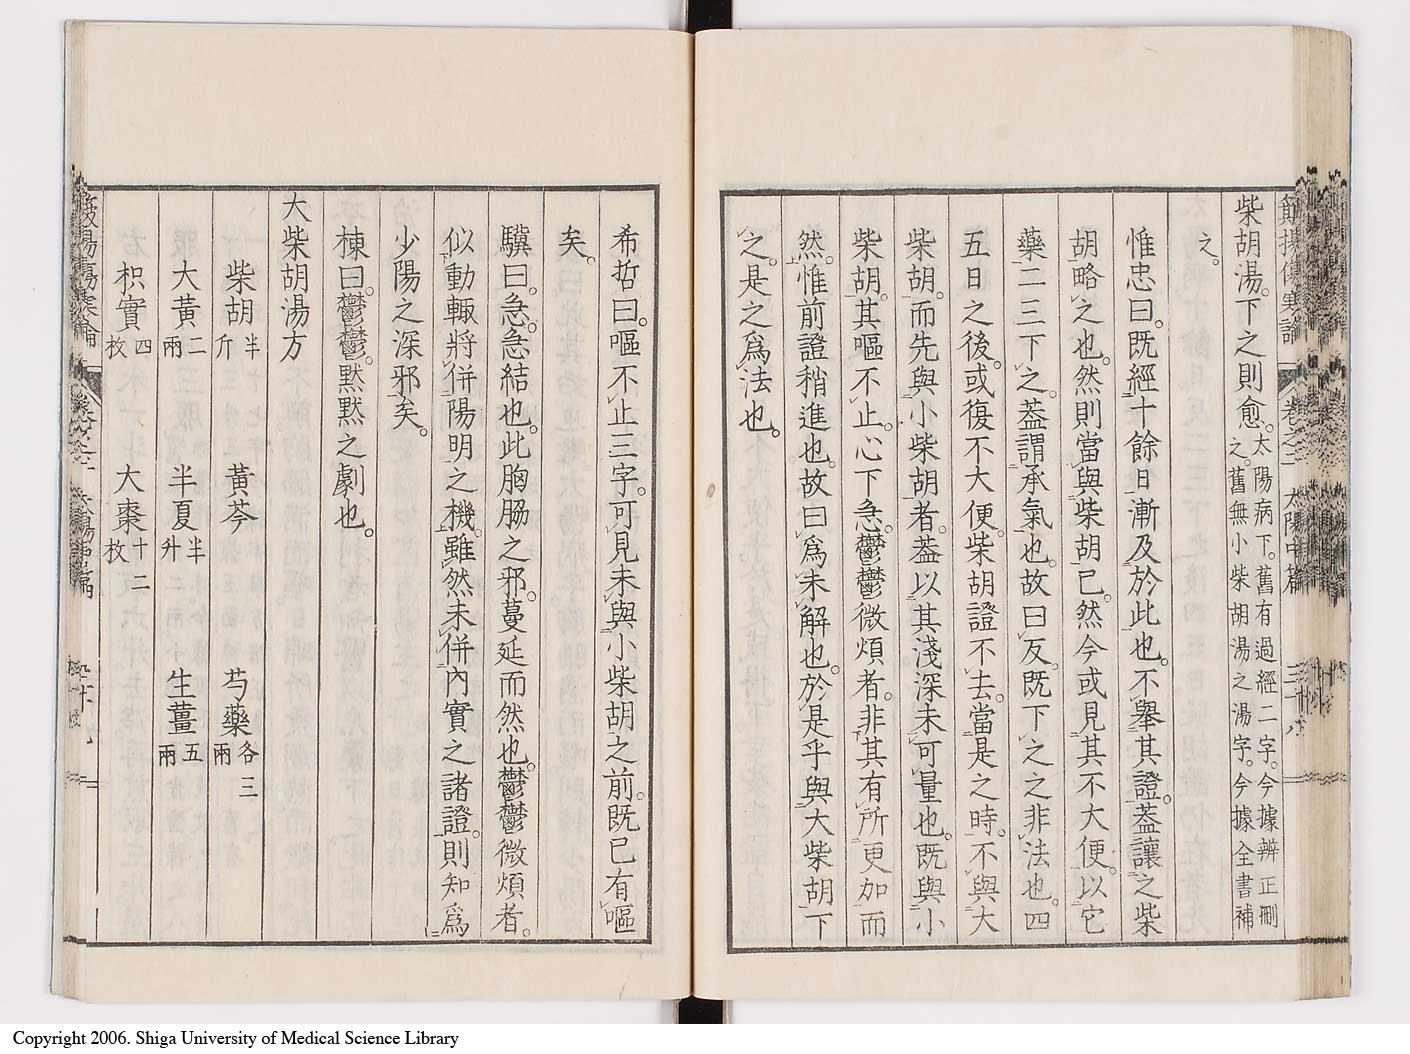 柴胡湯。下之則愈。太陽病下。舊有過經二字。今據辨正刪之。舊無小柴胡湯之湯字。今據全書補
之。
惟忠曰。既經十餘日漸及於此也。不舉其證。葢讓之柴
胡略之也。然則當與柴胡已。然今或見其不大便。以它
藥二三下之。葢謂承氣也。故曰反。既下之之非法也。四
五日之後。或復不大便。柴胡證不去。當是之時。不與大
柴胡。而先與小柴胡者。葢以其淺深未可量也。既與小
柴胡。其嘔不止。心下急。鬱鬱微煩者。非其有所更加而
然。惟前證稍進也。故曰爲未解也。於是乎與大柴胡下
之。是之爲法也。
希哲曰。嘔不止三字。可見未與小柴胡之前。既已有嘔
矣。
驥曰。急。急結也。此胸脇之邪。蔓延而然也。鬱鬱微煩者。
似動輙將併陽明之機。雖然未併內實之諸證。則知爲
少陽之深邪矣。
棟曰。鬱鬱。默默之劇也。
大柴胡湯方
柴胡半斤 黃芩 芍藥各三兩
大黃二兩 半夏半升 生薑五兩
枳實四枚 大棗十二枚
卷之二 太陽中篇 三十八
Copyright 2006. Shiga University of Medical Science Library